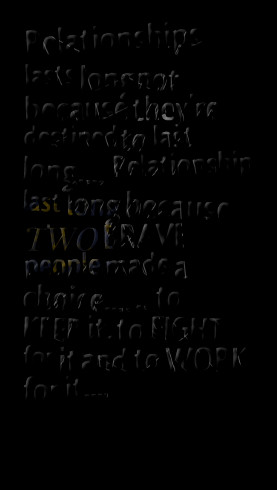 Relationships
last long not
because they're
destined to last
long.... Relationship
last long because
TWO BRAVE
people made a
choice...... to
KEEP it..to FIGHT
for it and to WORK
for it....